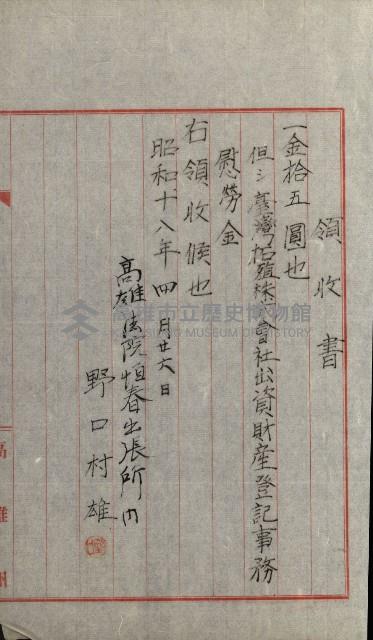 領收書
一金拾五圓也
但シ臺灣拓殖株式會社出資財產登記事務
慰勞金
右領收候也
昭和十八年四月廿六日
高雄法院恒春出張所内
野口村雄
高雄州
高雄市立歷史博物館
KAOHSIUNG MUSEUM OF HISTORY